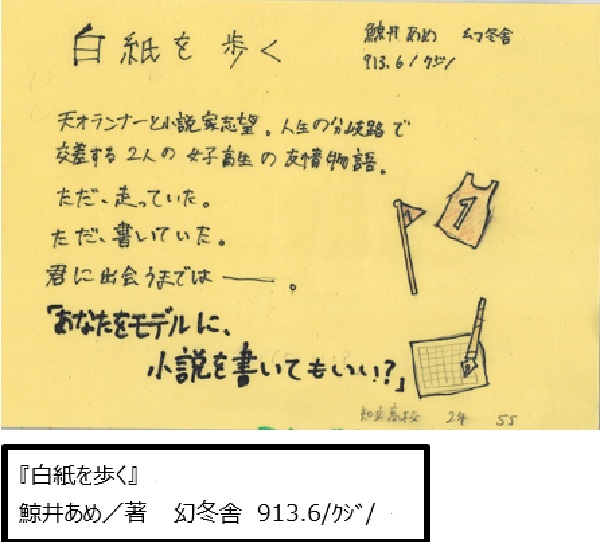 白紙を歩く
鯨井あめ 幻冬舎
913.6/クジ/
天才ランナーと小説家志望。人生の分岐路で
交差する2人の女子高生の友情物語。
ただ、走っていた。
ただ、書いていた。
君に出会うまでは――。
「あなたをモデルに、
小説を書いてもいい!?」
7
高校 2年 SS
『白紙を歩く』
鯨井あめ／著 幻冬舎 913.6/ｸｼﾞ/